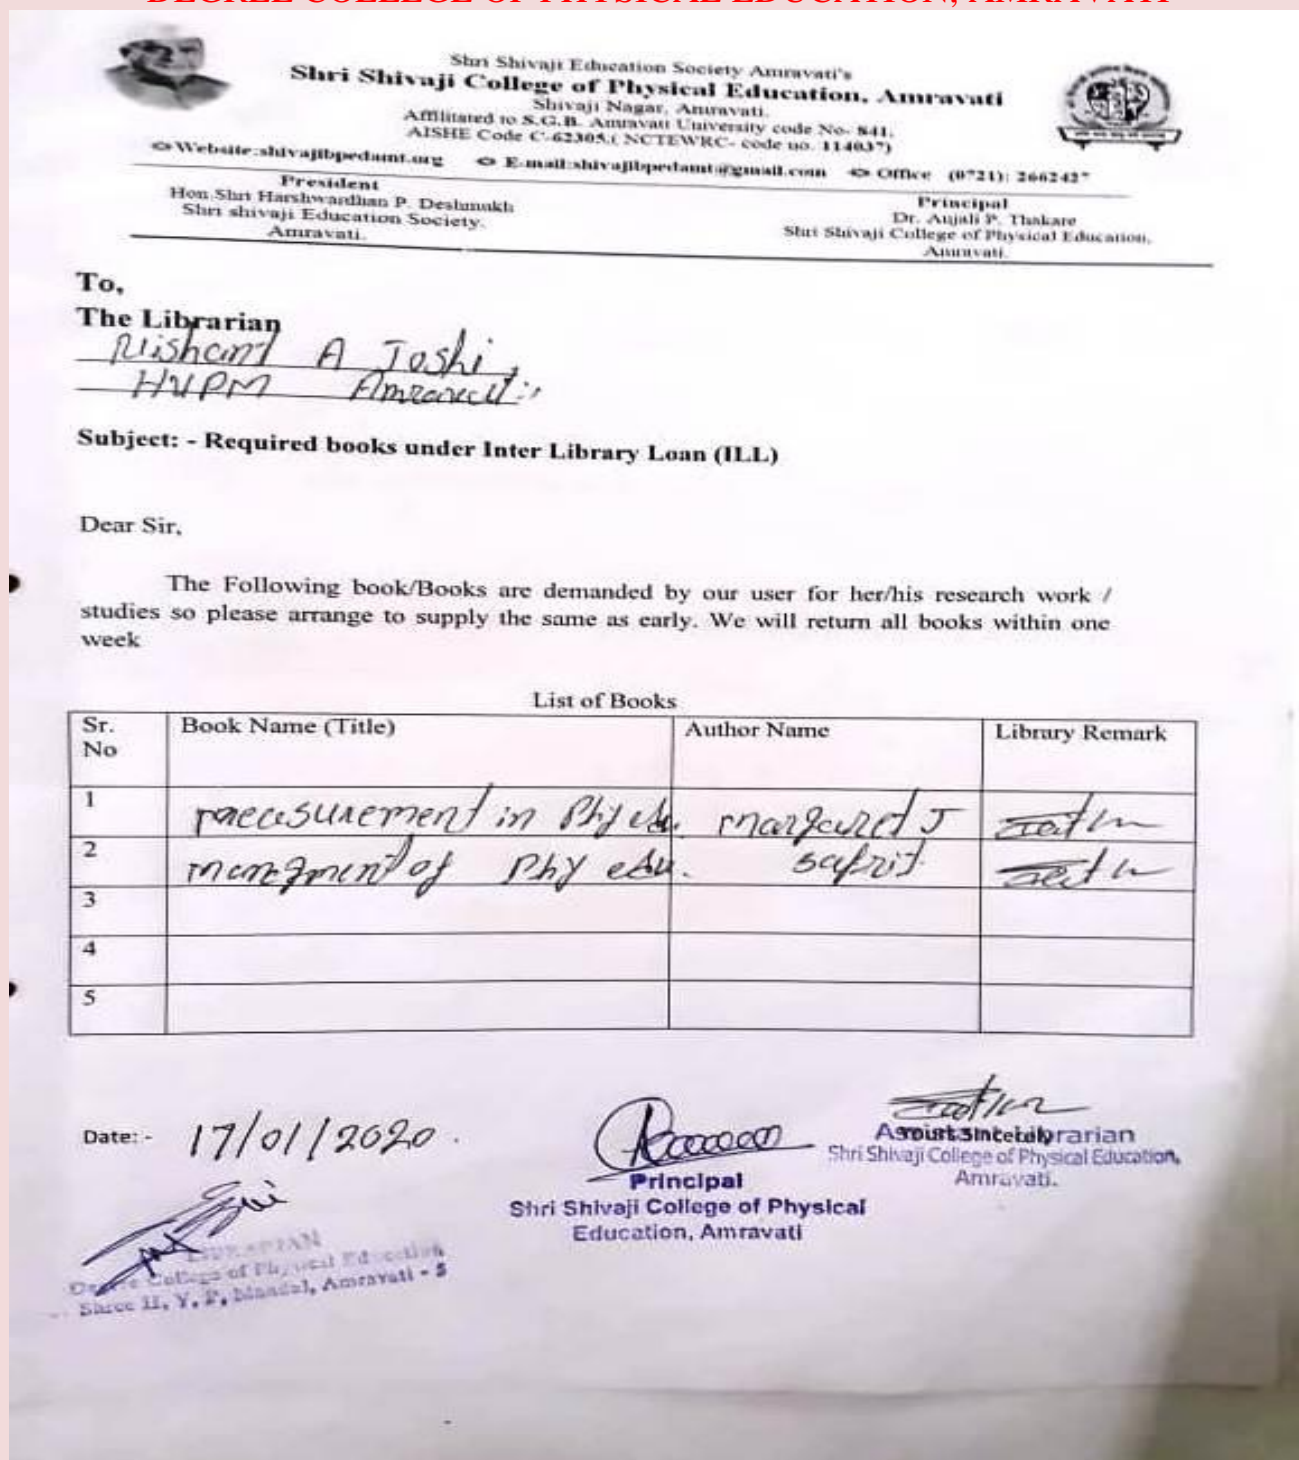 DEGREE COLLEGE OF PHYSICAL EDUCATION, AMRAVATI
Shri Shivaji Education Society Amravati's
Shri Shivaji College of Physical Education, Amravati
Shivaji Nagar, Amravati.
Affilitated to S.G.B. Amravati University code No- 841.
AISHE Code C-62305.( NCTEWRC- code no. 114037)
Website:shivajibpedamt.org E-mail:shivajibpedamt@gmail.com Office (0721): 2662427
President
Hon.Shri Harshwardhan P. Deshmukh
Shri shivaji Education Society.
Amravati.
Principal
Dr. Anjali P. Thakare
Shri Shivaji College of Physical Education,
Amravati.
To,
The Librarian
Nishant A Joshi,
HVPM Amravati
Subject: - Required books under Inter Library Loan (ILL)
Dear Sir,
The Following book/Books are demanded by our user for her/his research work /
studies so please arrange to supply the same as early. We will return all books within one
week
List of Books
Sr. No Book Name (Title) Author Name Library Remark
1 measurement in Phy edu. margaret J
2 mangment of Phy edu. safrit
3
4
5
Date: - 17/01/2020.
Principal
Shri Shivaji College of Physical
Education, Amravati
Shri Shivaji College of Physical Education,
Amravati.
LIBRARIAN
Degree College of Physical Education
Shree H. V. P. Mandal, Amravati - 5